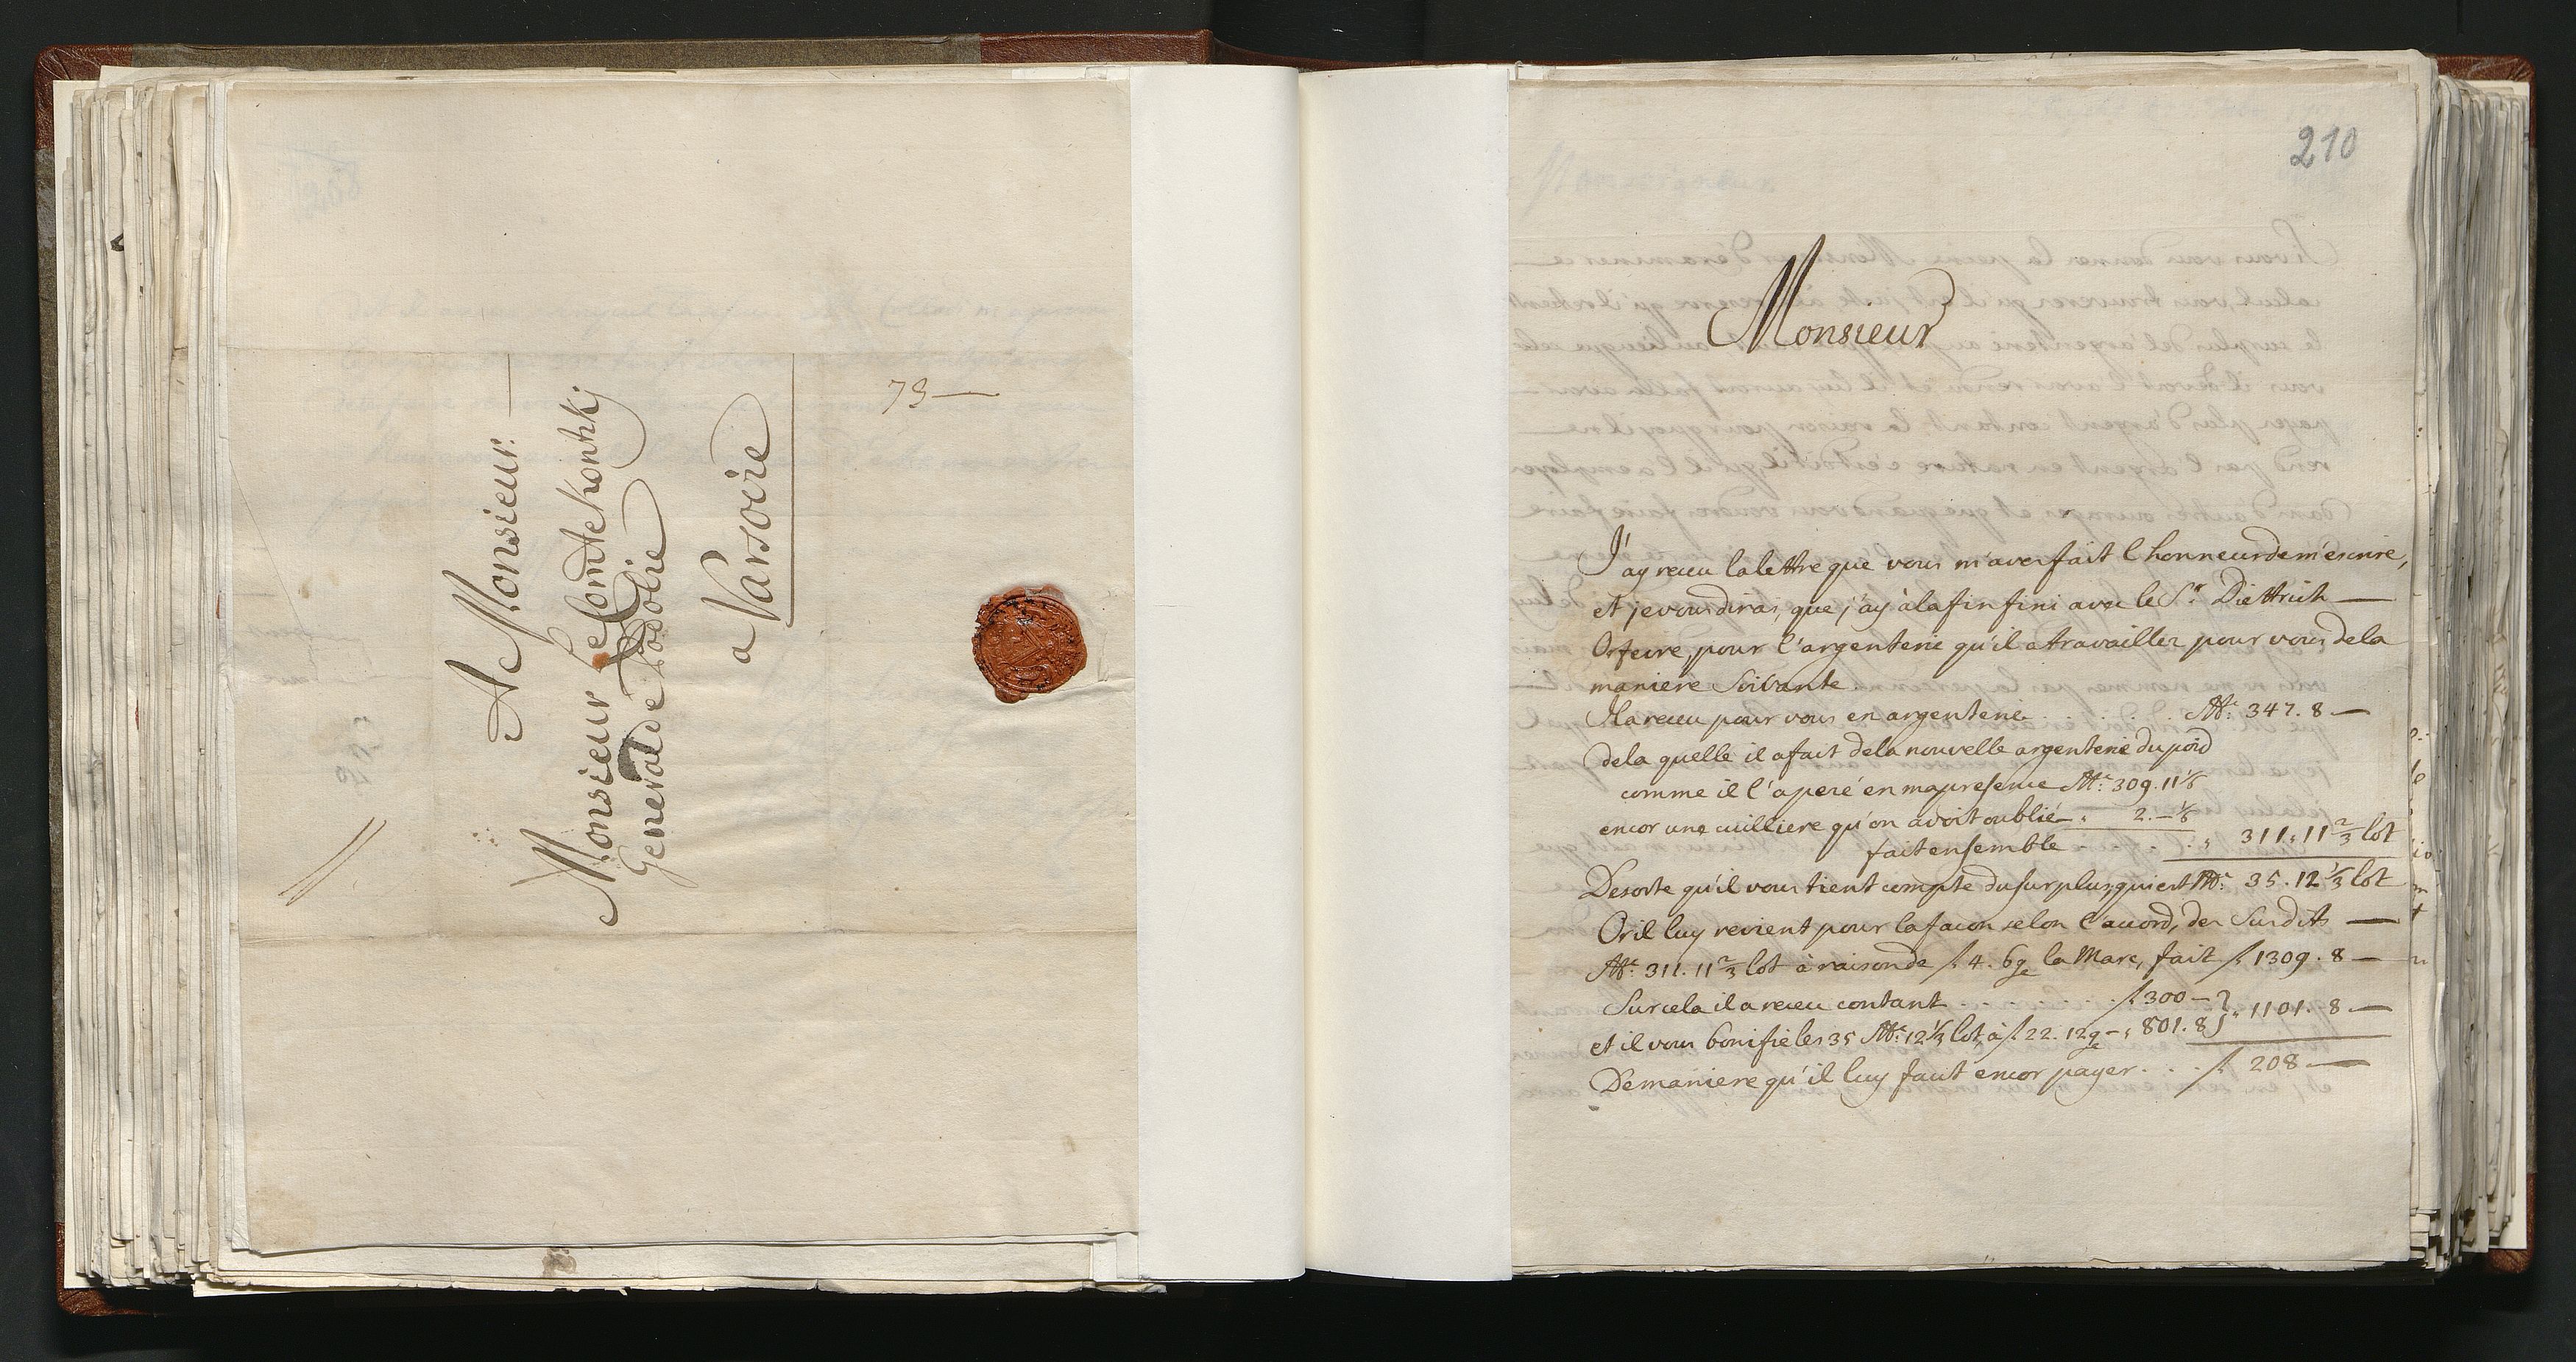 A Monsieur
Monsieur Le Comte Kontskj
General de Podolie
a Varsovie
73 —
210
Monsieur
J'ay receu la lettre que vous m'avez fait l'honneur de m'escrire,
et je vous dirai, que j'ay à la fin fini avec le Sr. Diettrich —
Orfevre, pour l'argenterie qu'il a travaillez pour vous de la
maniere Suivante.
Il a receu pour vous en argenterie . . . . . . Mc: 347. 8 —
de la quelle il a fait de la nouvelle argenterie du poid
comme il l'a pesé en ma presence Mc: 309. 11 1/6
encor une cuilliere qu'on avoit oublié „ 2. — 1/6
fait ensemble . . . . . „ 311. 11 2/3 lot
De sorte qu'il vous tient compte du surplus, qui est Mc: 35. 12 1/3 lot
Or il luy revient pour la facon selon l'accord, des Susdits —
Mc: 311. 11 2/3 lot à raison de f. 4. 6g la Marc, fait f. 1309. 8 —
Sur cela il a receu contant . . . . . . . f. 300 — } „ 1101. 8 —
et il vous bonifie les 35 Mc: 12 1/3 lot, à f. 22. 12g — „ 801. 8
De maniere qu'il luy faut encor payer . . . f. 208 —